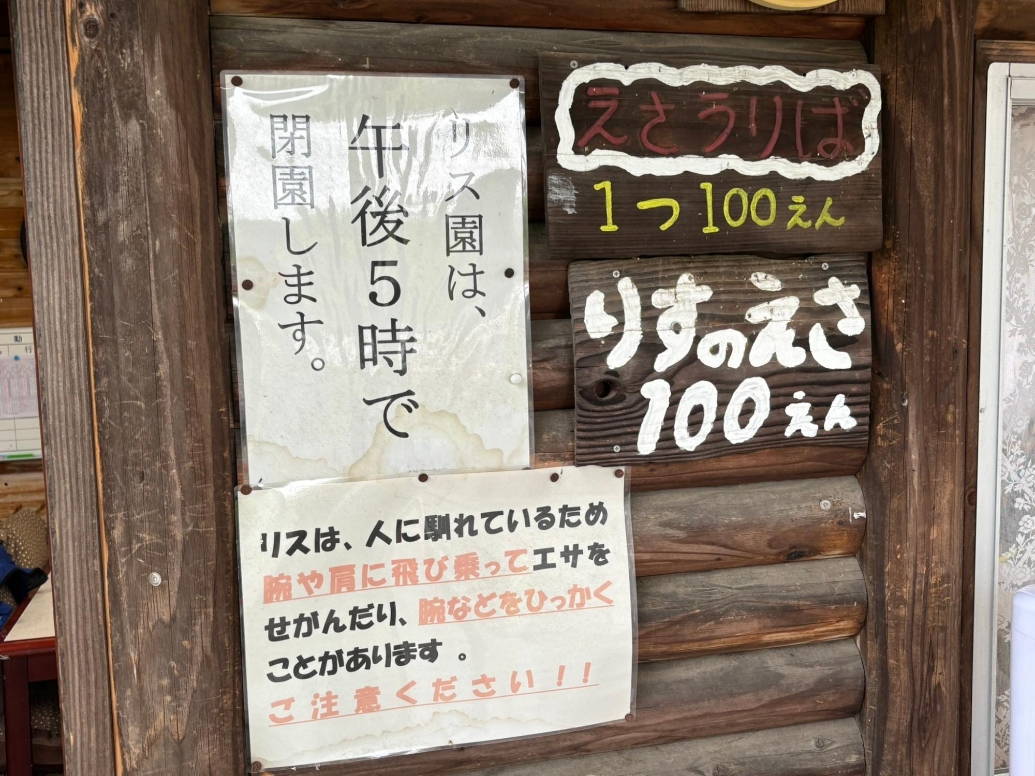 リス園は、
午後5時で
閉園します。
えさうりば
1つ100えん
りすのえさ
100えん
リスは、人に馴れているため
腕や肩に飛び乗ってエサを
せがんだり、腕などをひっかく
ことがあります。
ご注意ください!!